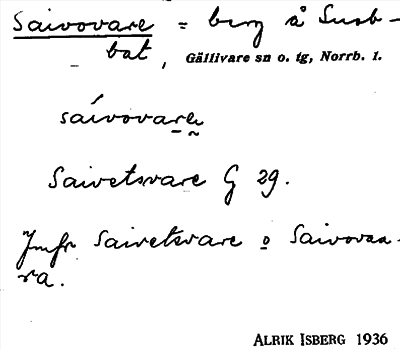 Saivovare = berg å Susb-
bat, Gällivare sn o. tg, Norrb. l.
saívovare
Saivetsvare G 29.
Jmfr Saivetsvare o Saivovaa-
ra.
ALRIK ISBERG 1936